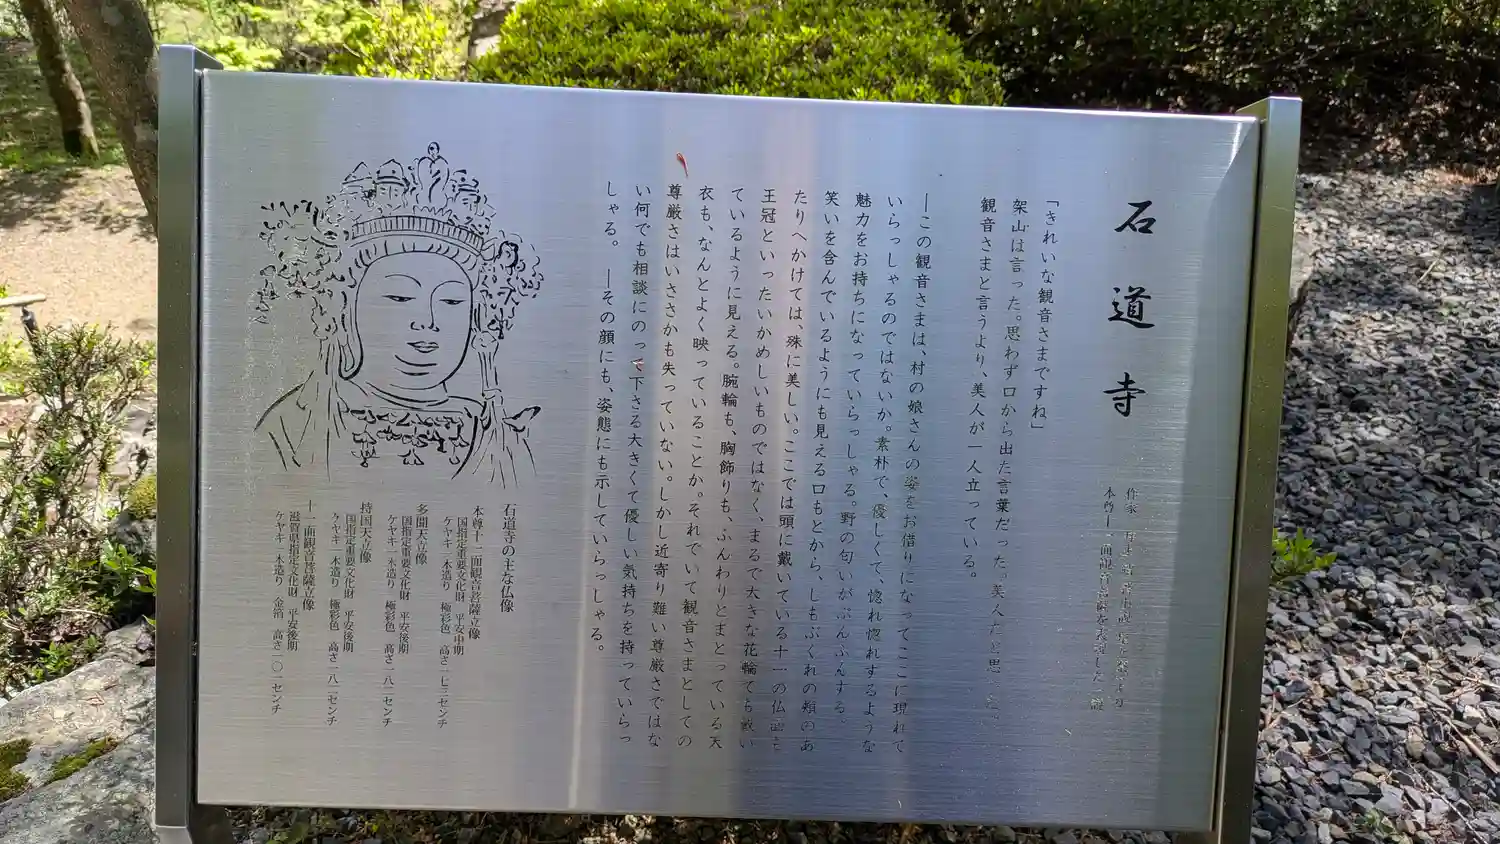 石道寺
作家
本尊十一面観音菩薩を表現した一節
「きれいな観音さまですね」
架山は言った。思わず口から出た言葉だった。美人だと思
観音さまと言うより、美人が一人立っている。
―この観音さまは、村の娘さんの姿をお借りになってここに現れて
いらっしゃるのではないか。素朴で、優しくて、惚れ惚れするような
魅力をお持ちになっていらっしゃる。野の匂いがぷんぷんする。
笑いを含んでいるようにも見える口もとから、しもぶくれの頬のあ
たりへかけては、殊に美しい。ここでは頭に戴いている十一の仏面も
王冠といったいかめしいものではなく、まるで大きな花輪でも戴い
ているように見える。腕輪も、胸飾りも、ふんわりとまとっている天
衣も、なんとよく映っていることか。それでいて観音さまとしての
尊厳さはいささかも失っていない。しかし近寄り難い尊厳さではな
い何でも相談にのって下さる大きくて優しい気持ちを持っていらっ
しゃる。 ―その顔にも、姿態にも示していらっしゃる。
石道寺の主な仏像
本尊十一面観音菩薩立像
国指定重要文化財 平安中期
ケヤキ一木造り 極彩色 高さ一七三センチ
多聞天立像
国指定重要文化財 平安後期
ケヤキ一木造り 極彩色 高さ一八二センチ
持国天立像
国指定重要文化財 平安後期
ケヤキ一木造り 極彩色 高さ一八二センチ
十一面観音菩薩立像
滋賀県指定文化財 平安後期
ケヤキ一木造り 金箔 高さ一〇一センチ